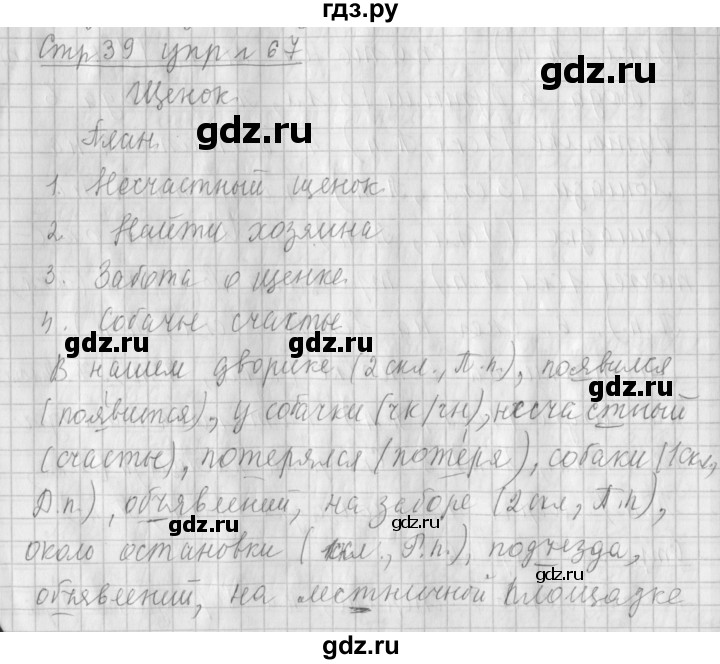 гдз.ру
Стр 39 упр № 67
Щенок.
План.
1. Несчастный щенок.
2. Найти хозяина
3. Забота о щенке.
4. Собачье счастье
В нашем дворике (2 скл., П.п.), появился
(появится), у собачки (чк/чн), несчастный
(счастье), потерялся (потеря), собаки (1 скл,
Д.п.), объявлений, на заборе (2 скл, П.п),
около остановки (1 скл., Р.п.), подъезда,
объявлений, на лестничной площадке
gdz.ru
gdz.ru
gdz.ru
gdz.ru
gdz.ru
gdz.ru
gdz.ru
gdz.ru
gdz.ru